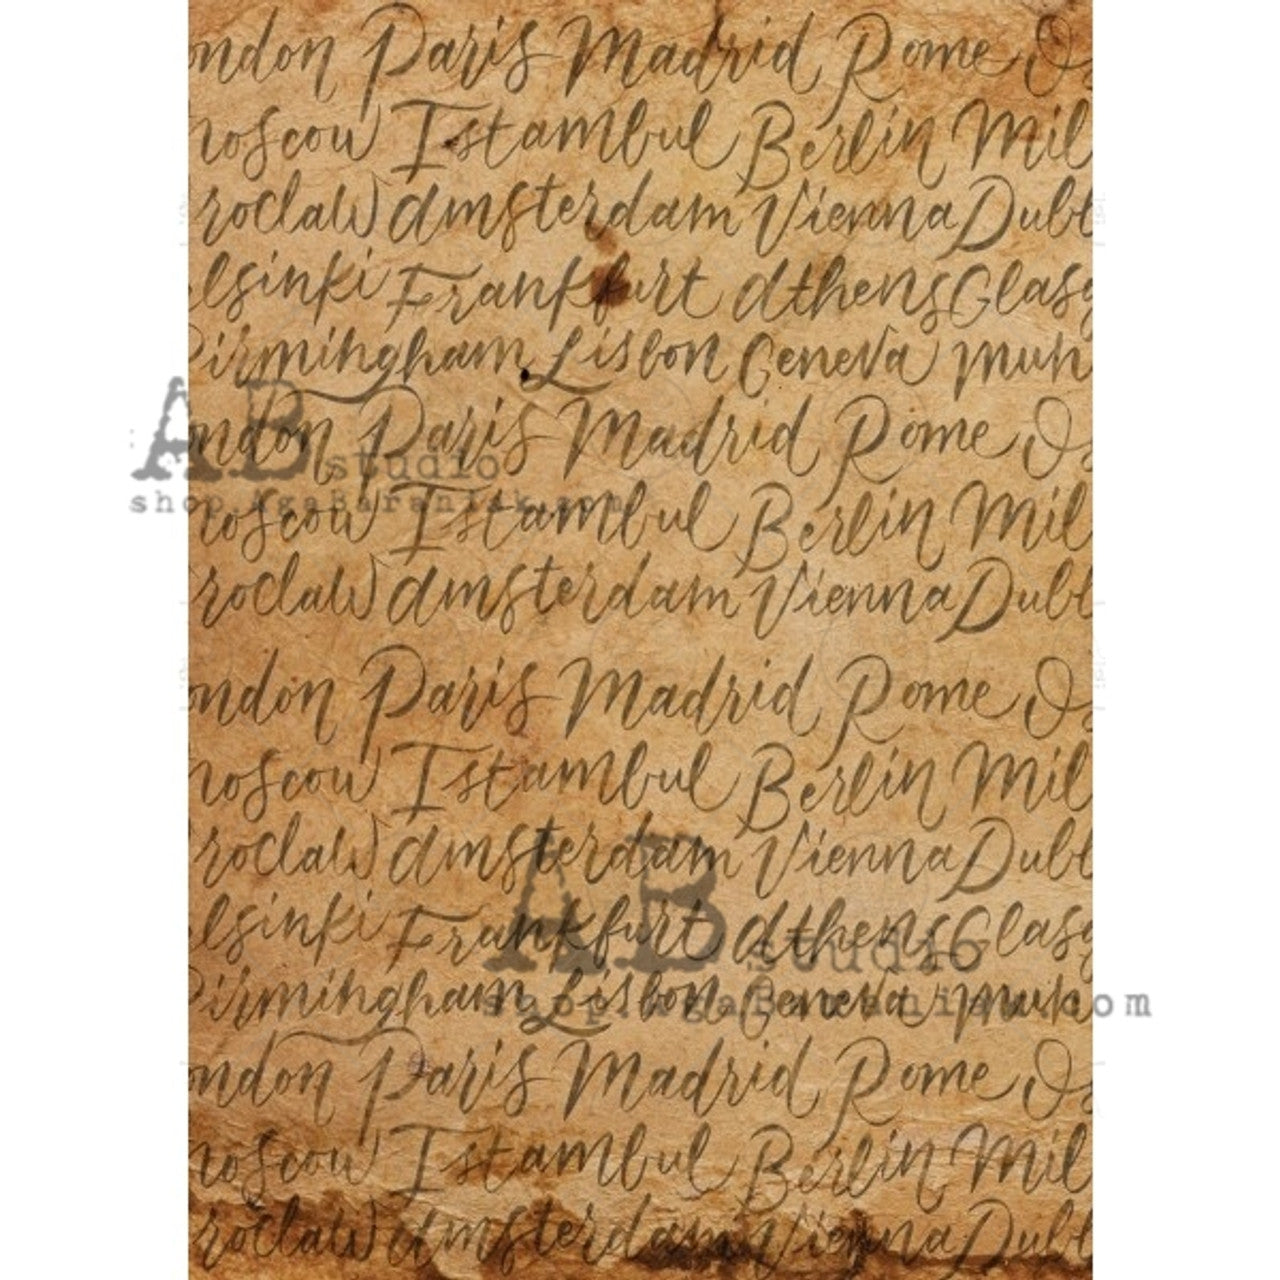 ondon Paris Madrid Rome Os
moscow Istambul Berlin Mil
roclaw amsterdam Vienna Dubl
lsinki Frankfurt athens Glasg
Birmingham Lisbon Geneva mun
ondon Paris Madrid Rome Os
AB studio
shop.AgaBaraniak.com
moscow Istambul Berlin Mil
roclaw amsterdam Vienna Dubl
ondon Paris Madrid Rome Os
moscow Istambul Berlin Mil
roclaw amsterdam Vienna Dubl
lsinki Frankfurt athens Glasg
AB studio
Birmingham Lisbon Geneva mun
shop.AgaBaraniak.com
ondon Paris Madrid Rome Os
moscow Istambul Berlin Mil
roclaw amsterdam Vienna Dubl